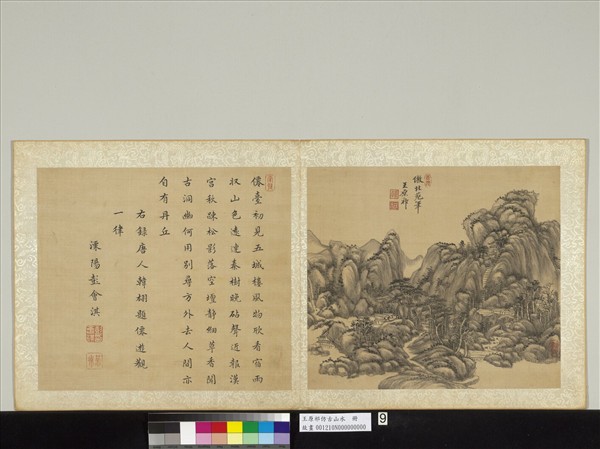 倣北苑筆
王原祁
僊臺初見五城樓風物欣看宿雨
收山色遙連秦樹晚砧聲近報漢
宮秋疎松影落空壇靜細草香閒
古洞幽何用別尋方外去人間亦
自有丹丘
右錄唐人韓翃題僊遊觀
一律
溧陽彭會淇
王原祁仿古山水 冊
故畫 001216N000000000
9